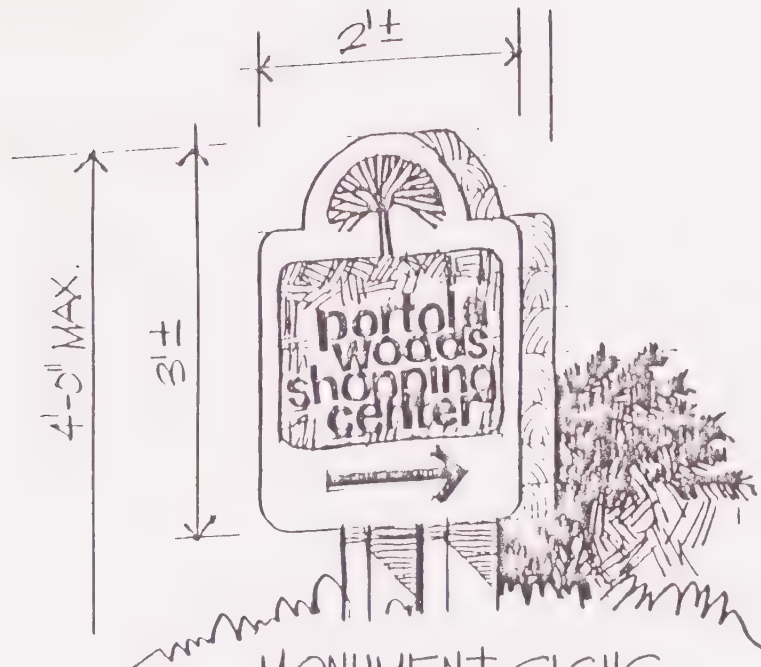 2'±
4'-0" MAX.
3'±
portola
woods
shopping
center
MONUMENT SIGNS